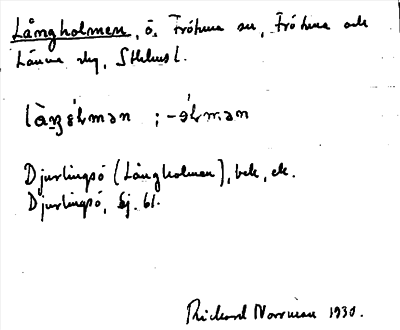 Långholmen, ö, Frötuna sn, Frötuna och
Länna skg, Sthlms l.
làŋhɷlmən ; -ɷlmən
Djurlingsö (Långholmen), bek, ek.
Djurlingsö, Gj. 61.
Rickard Norrman 1930.